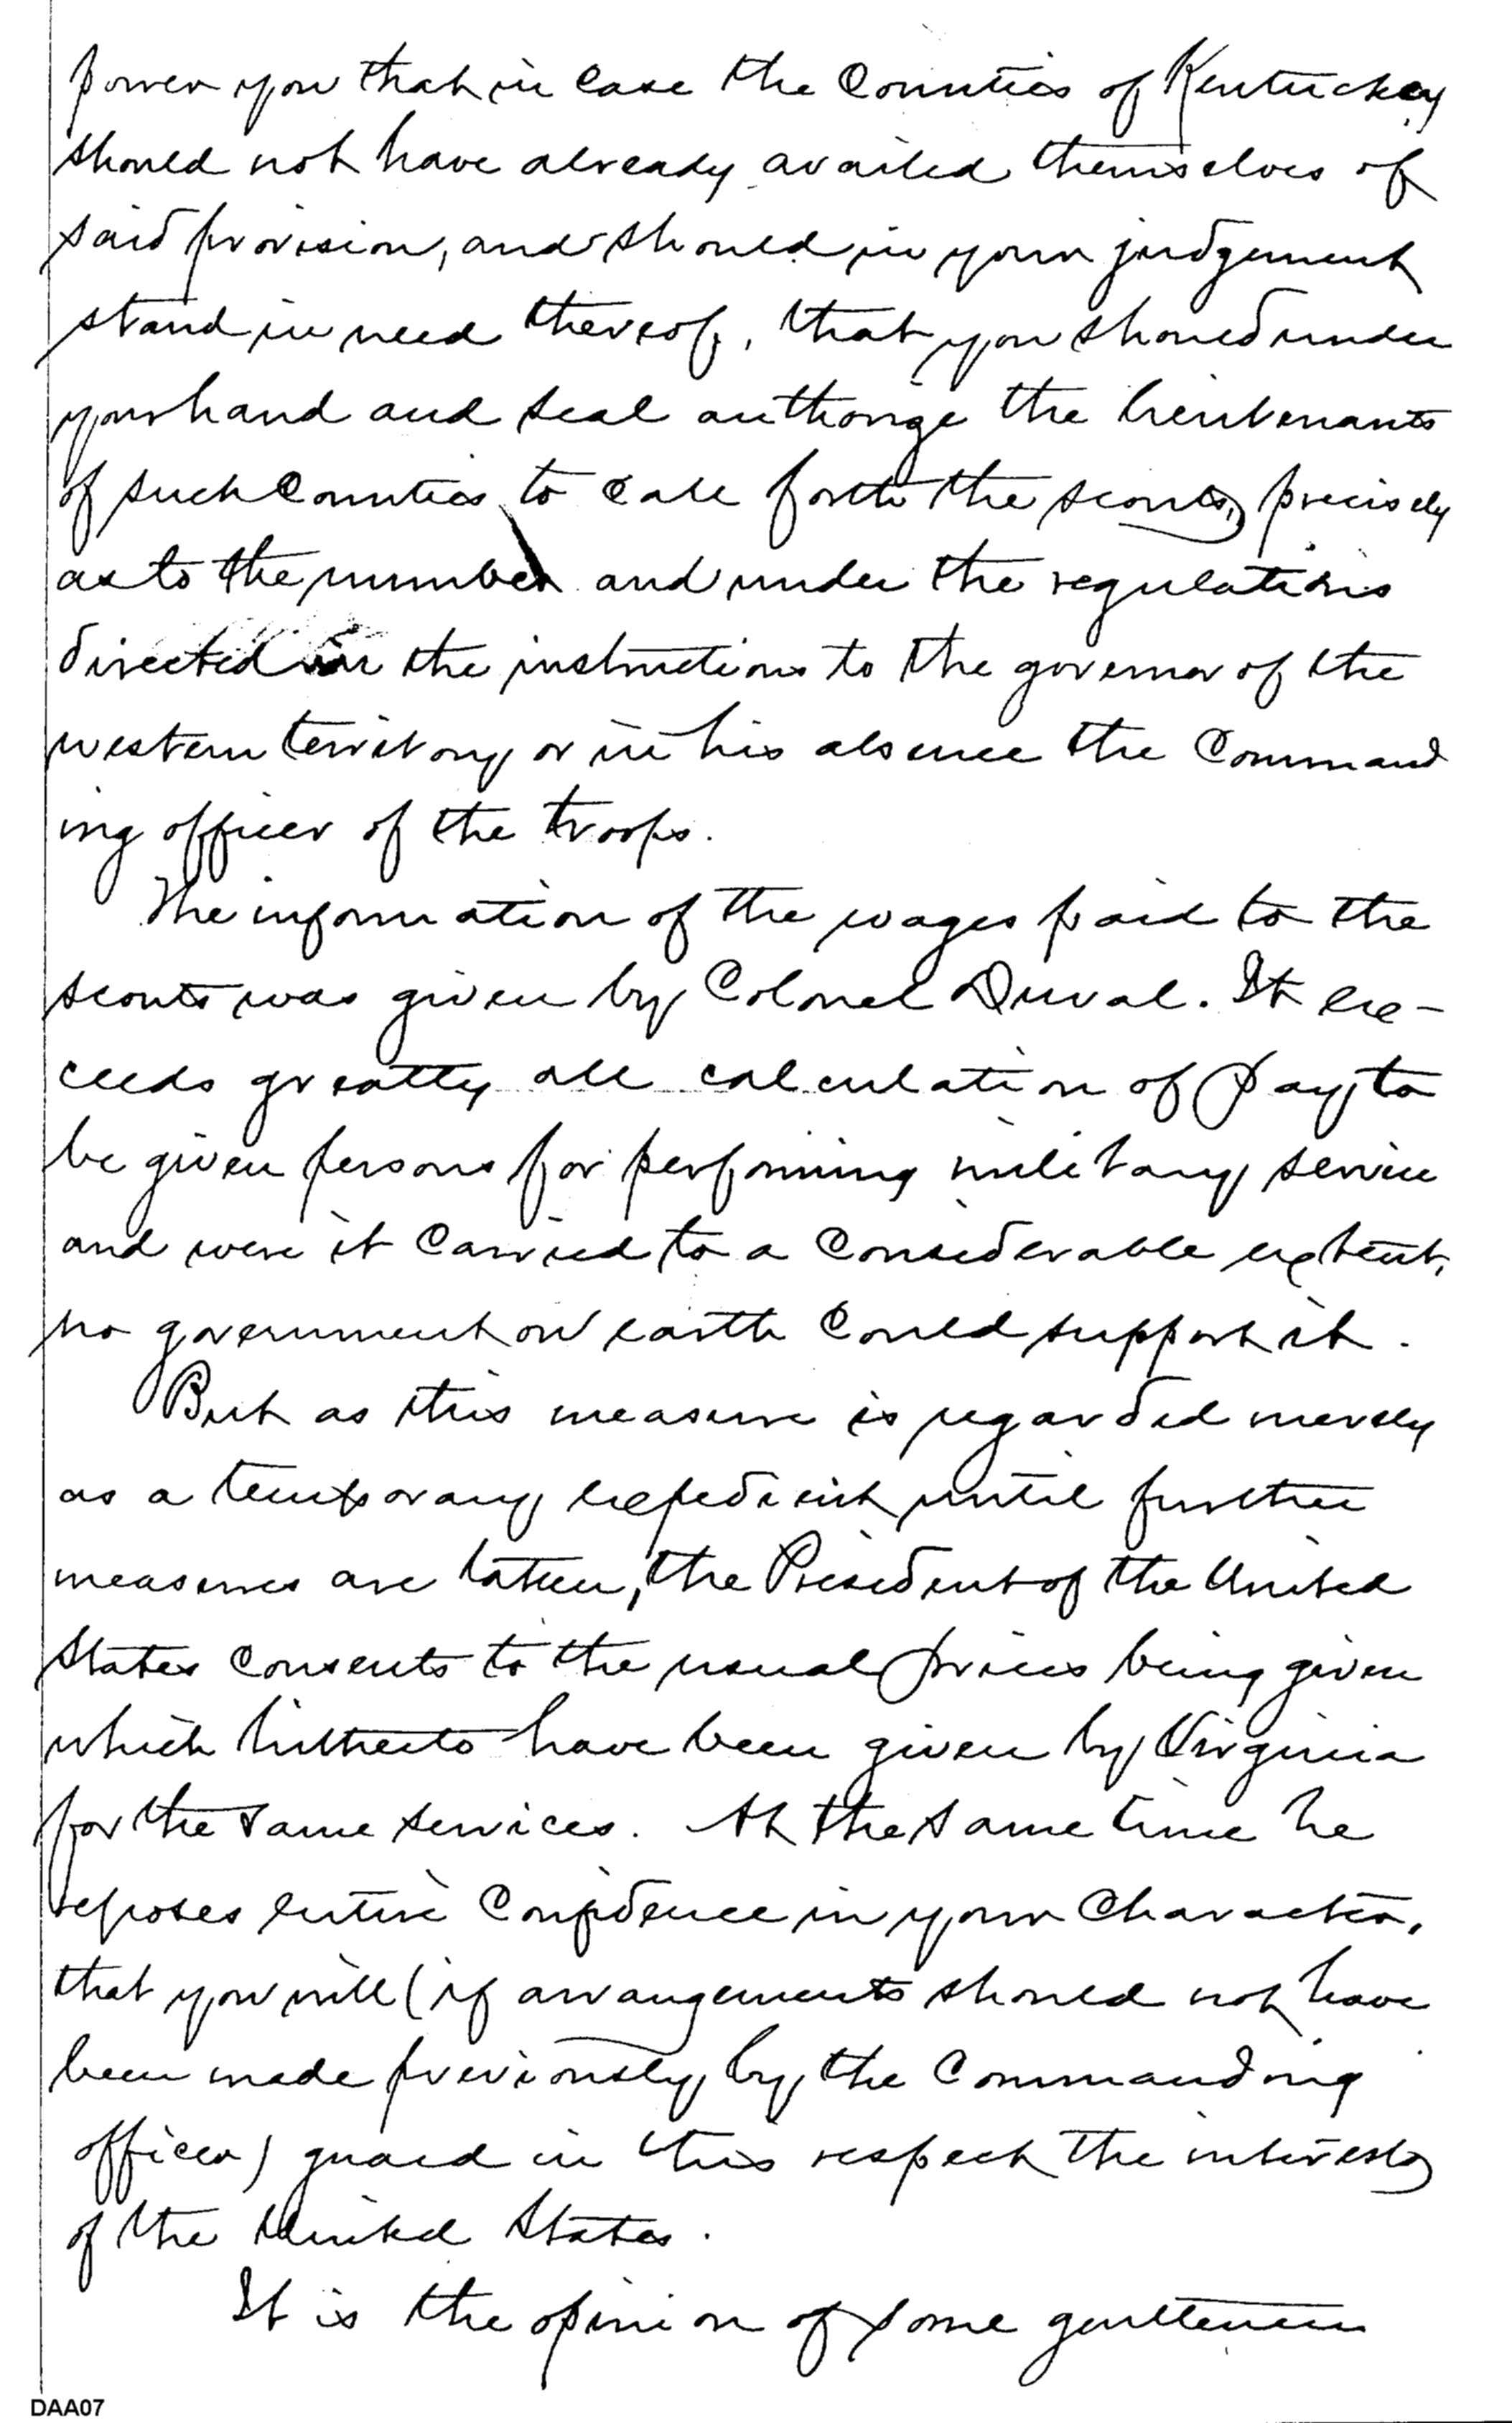 power you that in case the Counties of Kentuckey
should not have already availed themselves of
said provision, and should in your judgement
stand in need thereof, that you should under
your hand and seal authorize the lieutenants
of such Counties to call forth the scouts, precisely
as to the number and under the regulations
directed in the instructions to the governor of the
western territory or in his absence the Command
ing officer of the troops.
The information of the wages paid to the
scouts was given by Colonel Duval. It ex-
ceeds greatly all calculation of pay to
be given persons for performing military service
and were it carried to a considerable extent,
no government on earth could support it.
But as this measure is regarded merely
as a temporary expedient until further
measures are taken, the President of the United
States consents to the usual prices being given
which hitherto have been given by Virginia
for the same services. At the same time he
reposes entire Confidence in your Character,
that you will (if arrangements should not have
been made previously by the Commanding
officer) guard in this respect the interests
of the United States.
It is the opinion of some gentlemen
DAA07